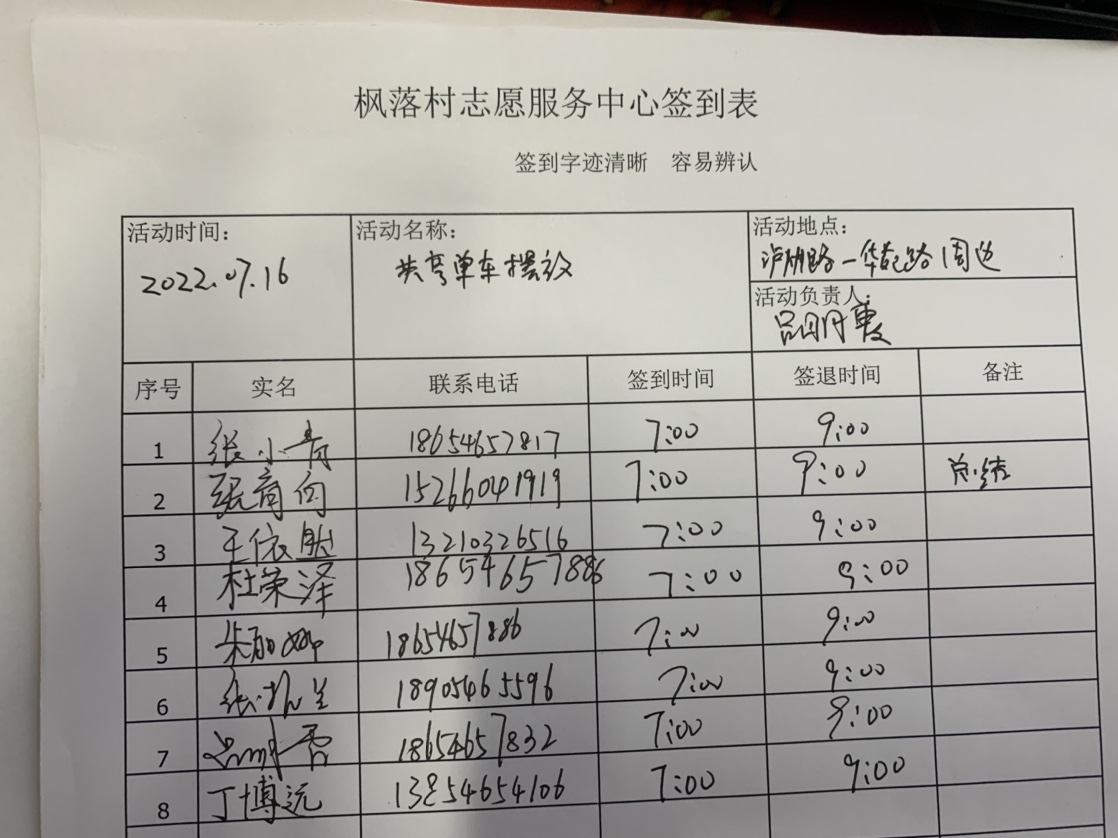 枫落村志愿服务中心签到表
签到字迹清晰 容易辨认
活动时间： 活动名称： 活动地点：
2022.07.16 共享单车摆放 路一华 路周边
活动负责人：
序号 实名 联系电话 签到时间 签退时间 备注
1 张小青 18654657817 7:00 9:00
2 张育向 15266041919 7:00 9:00 总结
3 王依然 13210326516 7:00 9:00
4 杜荣泽 18654657886 7:00 9:00
5 朱 18654657886 7:00 9:00
6 张 兰 18905465596 7:00 9:00
7 18654657832 7:00 9:00
8 丁博远 13854654106 7:00 9:00